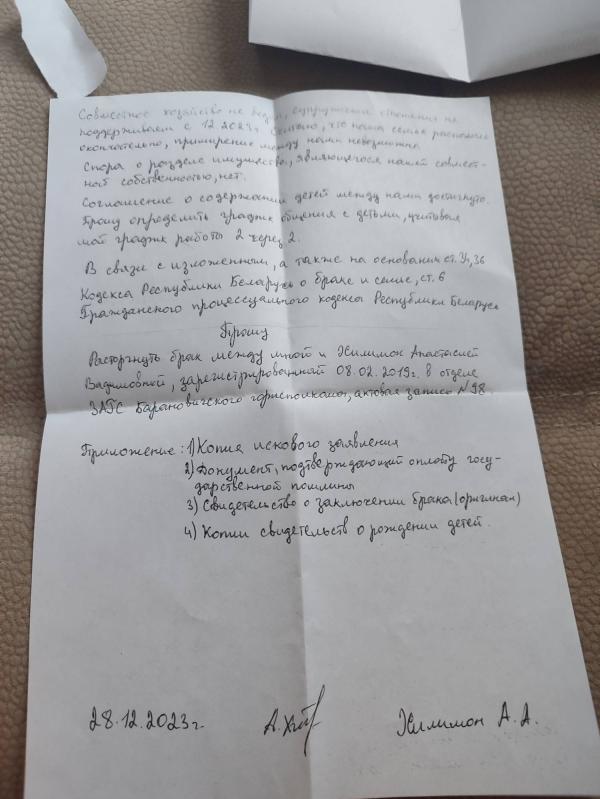 Совместное хозяйство не ведем, супружеские отношения не
поддерживаем с 12.2023г. Считаю, что наша семья распалась
окончательно, примирение между нами невозможно.
Спора о разделе имущества, являющегося нашей совмест-
ной собственностью, нет.
Соглашение о содержании детей между нами достигнуто.
Прошу определить график общения с детьми, учитывая
мой график работы 2 через 2.
В связи с изложенным, а также на основании ст. 36
Кодекса Республики Беларусь о браке и семье, ст. 6
Гражданского процессуального кодекса Республики Беларусь
Прошу
Расторгнуть брак между мной и Хилимон Анастасией
Вадимовной, зарегистрированный 08.02.2019г. в отделе
ЗАГС Барановичского горисполкома, актовая запись №98.
Приложение: 1) Копия искового заявления
2) Документ, подтверждающий оплату госу-
дарственной пошлины
3) Свидетельство о заключении брака (оригинал)
4) Копии свидетельств о рождении детей.
28.12.2023г. Хилимон А. А.